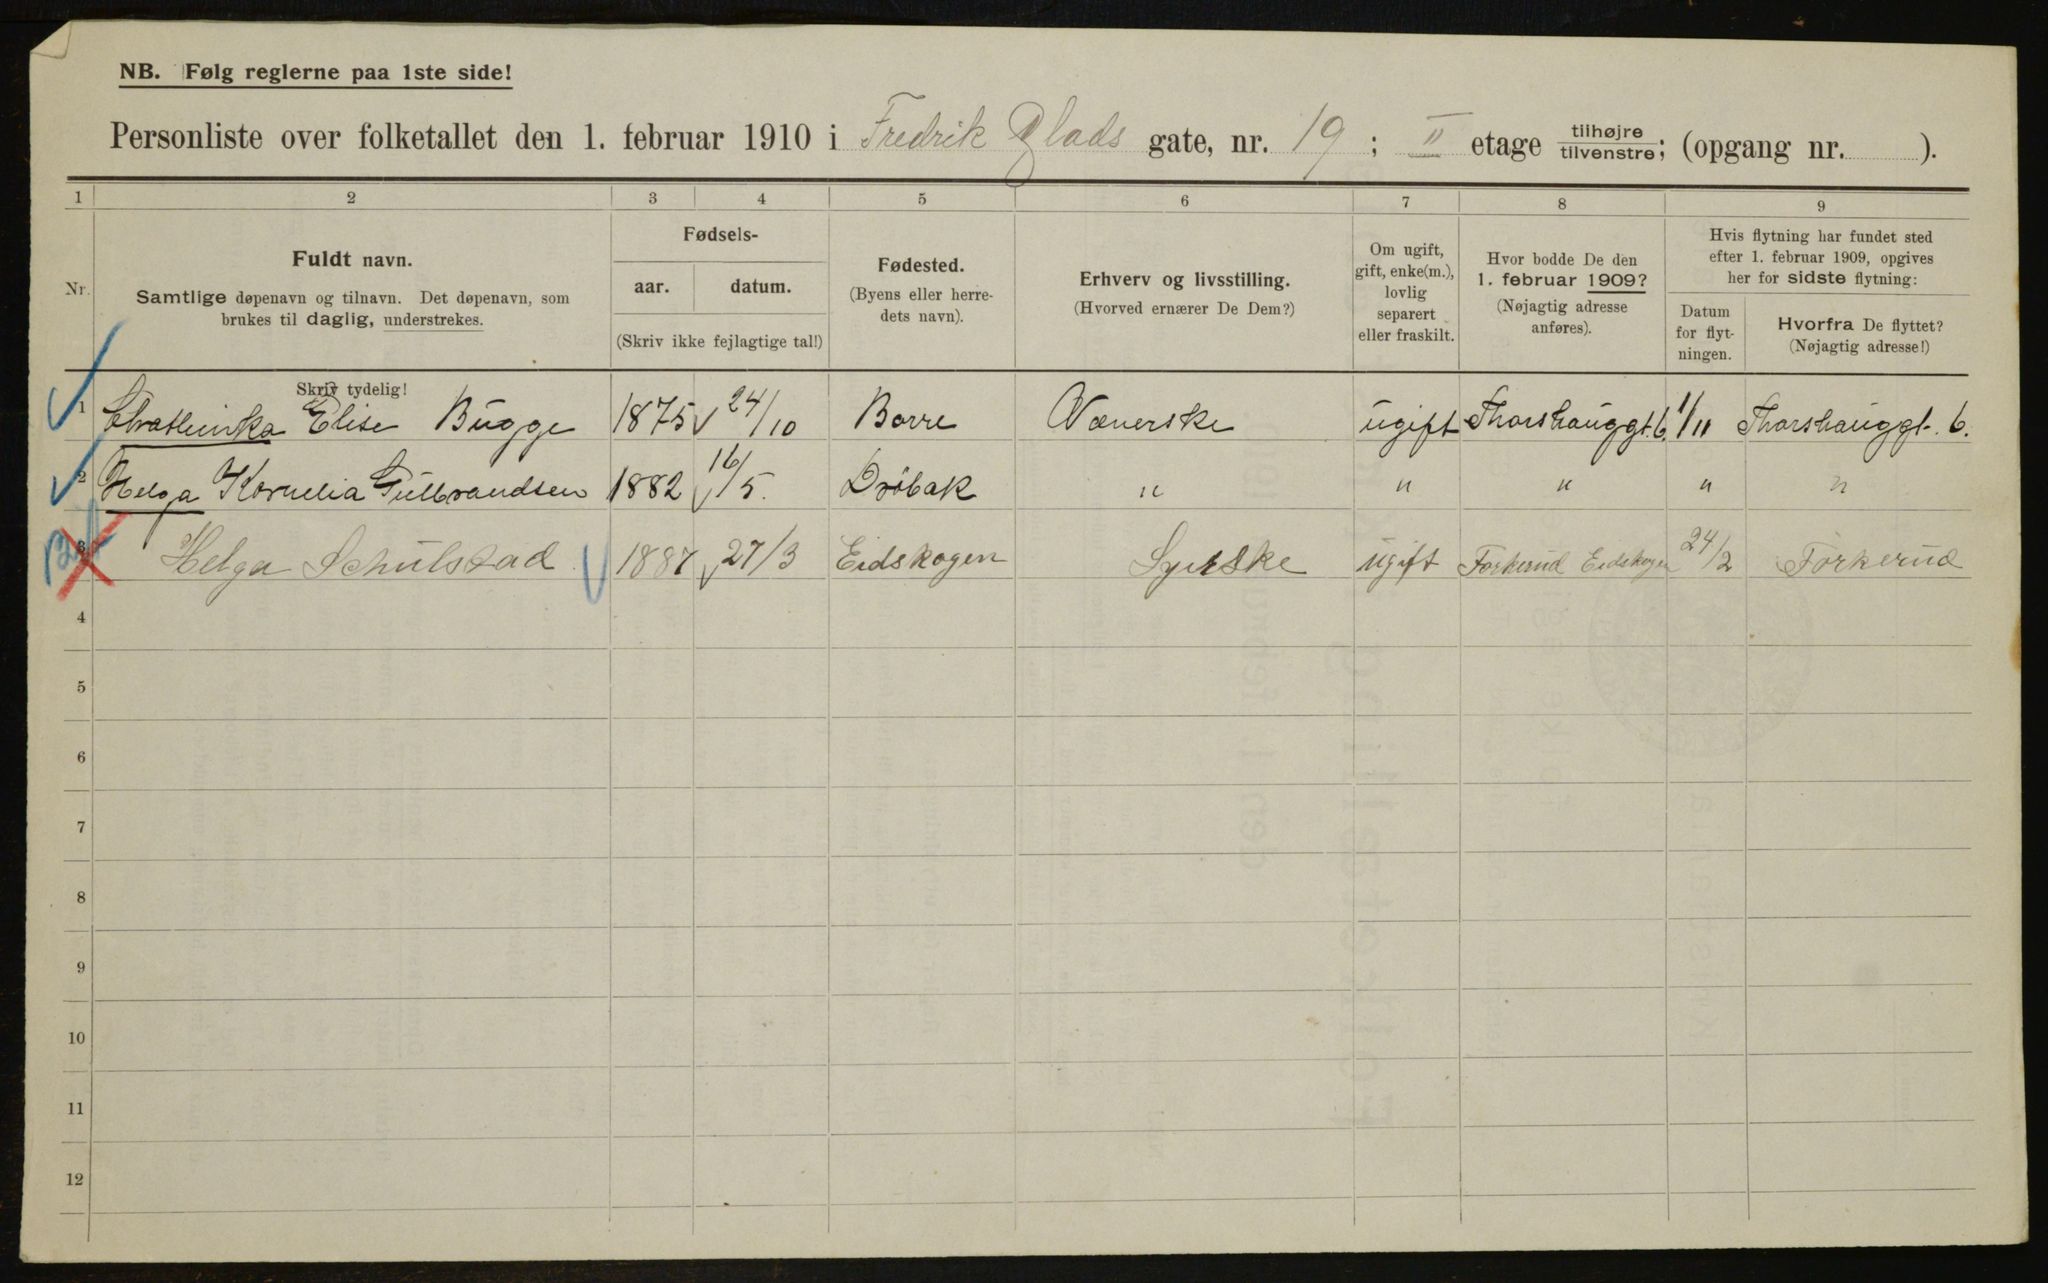 NB. Følg reglerne paa 1ste side!
Personliste over folketallet den 1. februar 1910 i Fredrik Glads gate, nr. 19; II etage tilhøjre/tilvenstre; (opgang nr. ).
1 2 3 4 5 6 7 8 9
Nr.
Fuldt navn.
Samtlige døpenavn og tilnavn. Det døpenavn, som
brukes til daglig, understrekes.
Skriv tydelig!
Fødsels-
aar. datum.
(Skriv ikke fejlagtige tal!)
Fødested.
(Byens eller herre-
dets navn).
Erhverv og livsstilling.
(Hvorved ernærer De Dem?)
Om ugift,
gift, enke(m.),
lovlig
separert
eller fraskilt.
Hvor bodde De den
1. februar 1909?
(Nøjagtig adresse
anføres).
Hvis flytning har fundet sted
efter 1. februar 1909, opgives
her for sidste flytning:
Datum
for flyt-
ningen.
Hvorfra De flyttet?
(Nøjagtig adresse!)
1 Elise Bugge 1875 24/10 Borre ugift Thorshauggt. 6. 1/11 Thorshauggt. 6.
2 Helga Kornelia Gulbrandsen 1882 16/5. Drøbak " " " " "
3 Helga Schulstad 1887 27/3 Eidskogen Syerske ugift Forkerud Eidskogen 24/2 Forkerud
4
5
6
7
8
9
10
11
12